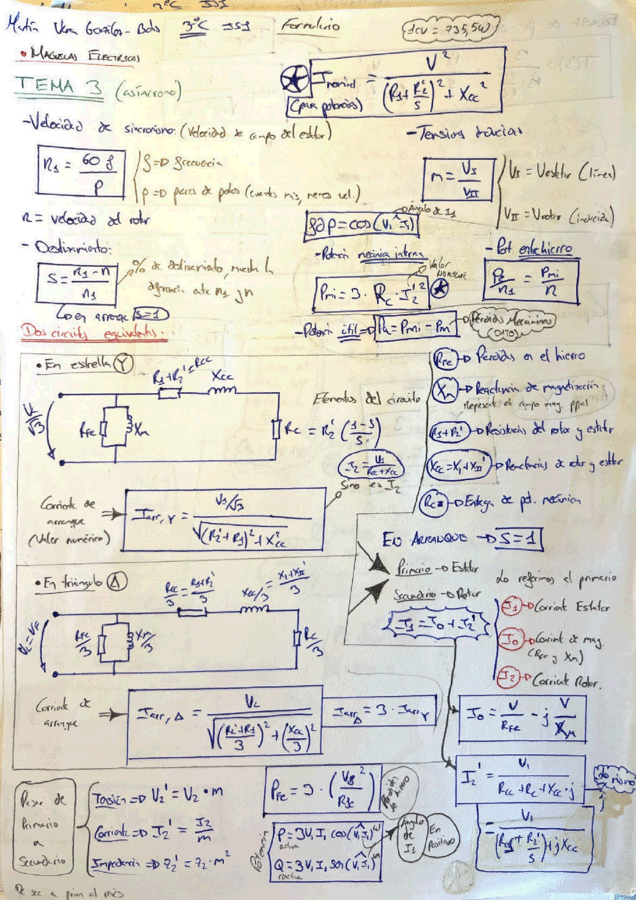 Formulario
1CV = 735,5W
3ºC IS1
• MAQUINAS ELECTRICAS
TEMA 3 (asíncrono)
I nominal = V² / ((R1 + R2'/S)² + Xcc²)
(para potencias)
- Velocidad de sincronismo: (Velocidad de campo del estator)
n1 = 60 f / P
f => frecuencia
P => pares de polos (cuantos más, menos vel.)
- Tensiones
m = VI / VII
VI = Vestator (línea)
VII = Vrotor (inducida)
n = velocidad del rotor
fdp = cos(V1 I1)
Ángulo de I1
- Deslizamiento:
S = n1 - n / n1
% de deslizamiento, muestra la
diferencia entre n1 y n
En arranque S=1
- Potencia mecánica interna
Pmi = 3 · Rc · I2'²
Valor nominal
- Pot. entrehierro
Pa / n1 = Pmi / n
- Potencia útil => Pu = Pmi - Pm
Pérdidas Mecánicas
(DATO)
Dos circuitos equivalentes
• En estrella Y
R1+R2' = Rcc
Xcc
VL/√3
RFe
Xμ
Elementos del circuito
Rc = R2' (1-S / S)
I2 = V1 / Rcc + Xcc
Sino es I2
RFe -> Pérdidas en el hierro
Xμ -> Reactancia de magnetización
Representa el campo mag. ppal
R1+R2' -> Resistencias del rotor y estator
Xcc = X1 + XII' -> Reactancias de rotor y estator
Rc -> Entrega de pot. mecánica
Corriente de
arranque
(Valor numérico)
Iarr,Y = V1/√3 / √((R2'+R1)² + Xcc²)
EN ARRANQUE -> S=1
Primario -> Estator
Secundario -> Rotor
Lo referimos al primario
I1 = I0 + I2'
I1 -> Corriente Estator
I0 -> Corriente de mag.
(RFe y Xμ)
I2 -> Corriente Rotor.
• En triángulo Δ
Rcc/3 = R1+R2'/3
Xcc/3 = X1+XII'/3
VL = VF
RFe/3
Xμ/3
Rc/3
Corriente de
arranque
Iarr,Δ = VL / √((R2'+R1/3)² + (Xcc/3)²)
IarrΔ = 3 · IarrY
I0 = V/RFe - j V/Xμ
I2' = V1 / Rcc + Rc + Xcc · j
= V1 / (R1 + R2'/S) + j Xcc
Lo mismo
Pasar de
Primario
a
Secundario
Tensión => V2' = V2 · m
Corriente => I2' = I2/m
Impedancia => Z2' = Z2 · m²
Potencia
P = 3 V1 I1 cos(V1 I1)
activa
Q = 3 V1 I1 sen(V1 I1)
reactiva
Ángulo
de
I2
En
Positivo